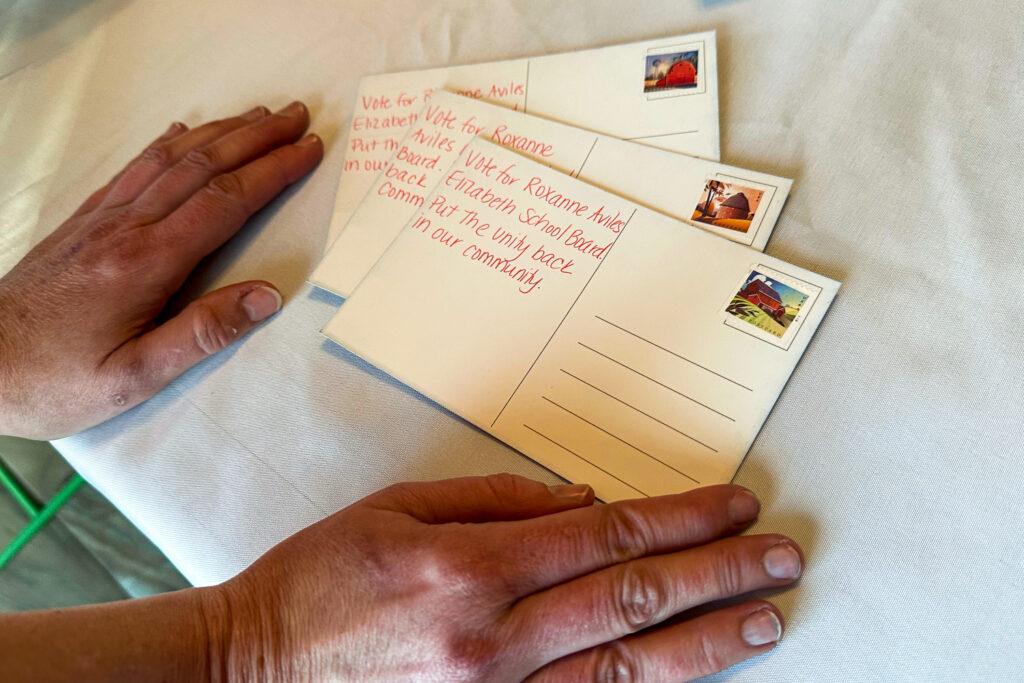 Vote for Roxanne Aviles
Elizabeth
Put th
in ou
Vote for Roxanne
Aviles
Board.
back
comm
Vote for Roxanne Aviles
Elizabeth School Board.
Put the unity back
in our community.